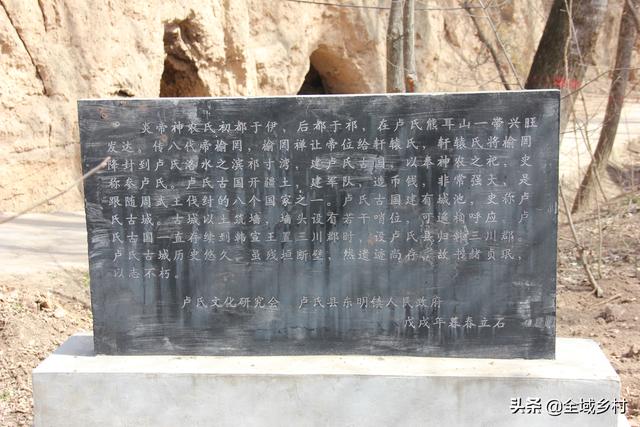 炎帝神农氏初都于伊，后都于祁，在卢氏熊耳山一带兴旺
发达。传八代帝榆罔，榆罔禅让帝位给轩辕氏，轩辕氏将榆罔
降封到卢氏洛水之滨祁寸湾，建卢氏古国，以奉神农之祀，史
称参卢氏。卢氏古国开疆土，建军队，造币钱，非常强大，是
跟随周武王伐纣的八个国家之一。卢氏古国建有城池，史称卢
氏古城。古城以土筑墙，墙头设有若干哨位，可遥相呼应。卢
氏古国一直存续到韩宣王置三川郡时，设卢氏县归韩三川郡。
卢氏古城历史悠久，虽残垣断壁，然遗迹尚存，故书绪贞珉，
以志不朽。
卢氏文化研究会 卢氏县东明镇人民政府
戊戌年暮春立石
头条 @全域乡村